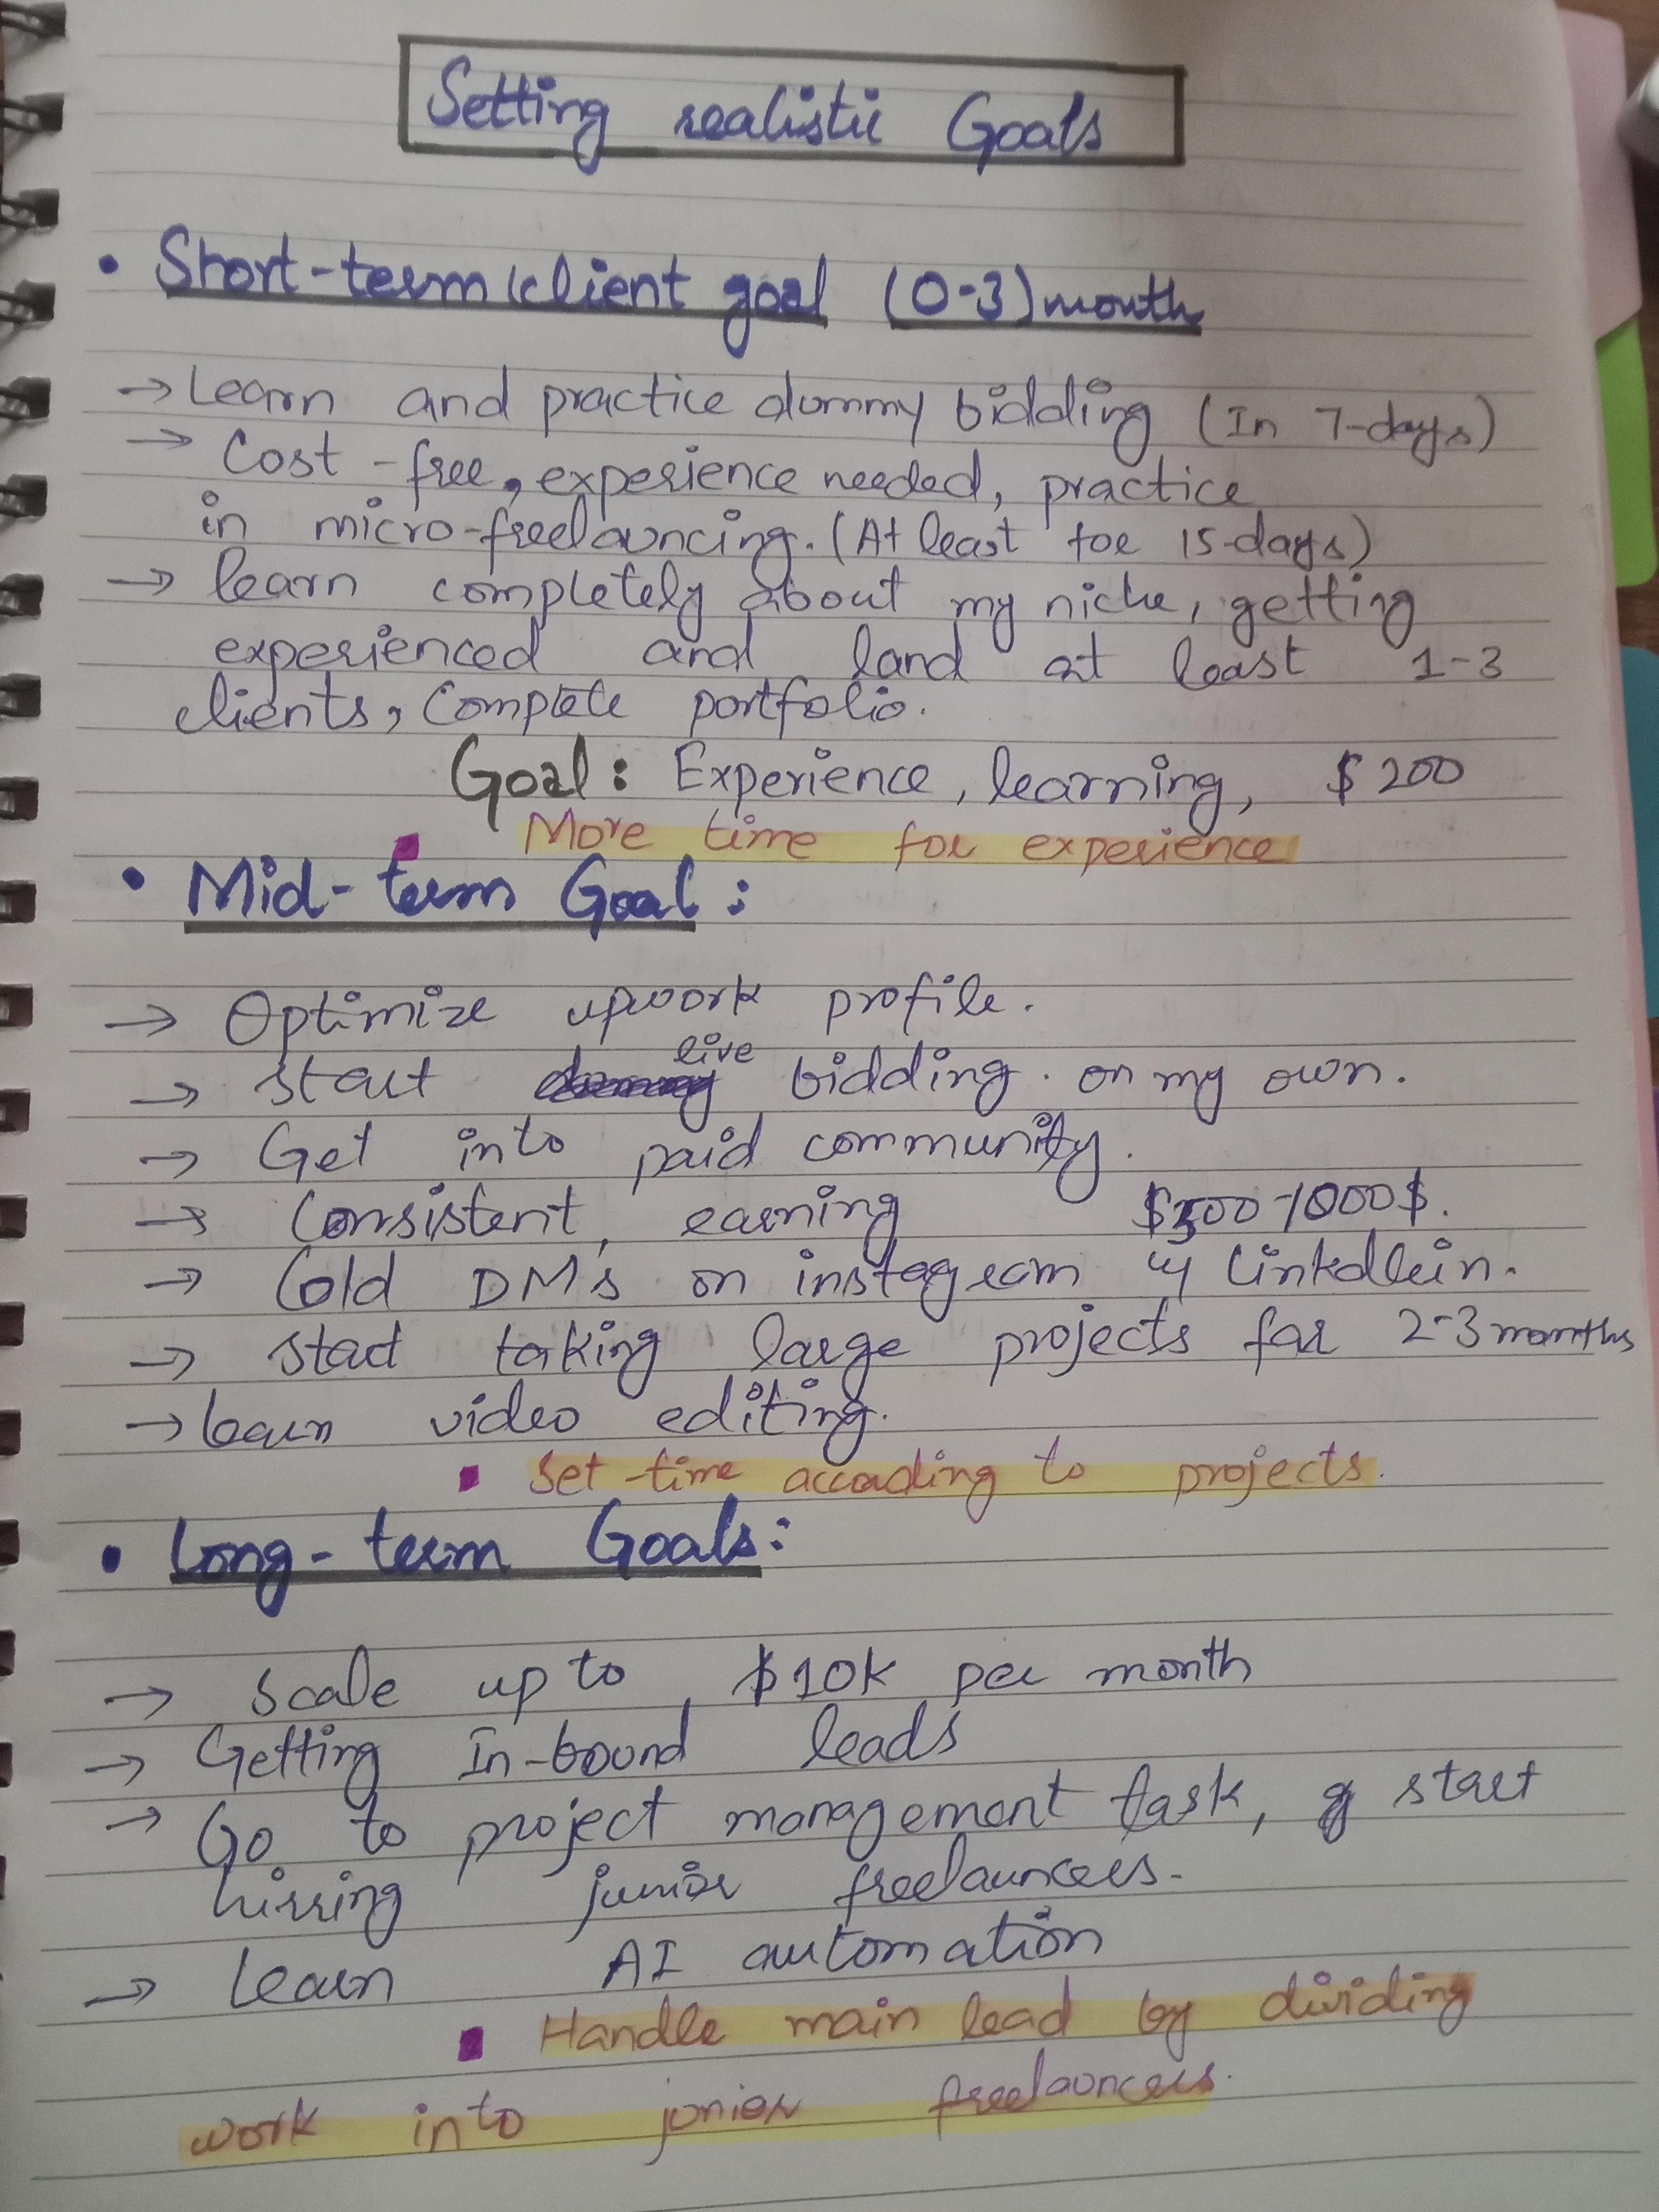 Setting realistic Goals
• Short-term client goal (0-3) month
→ Learn and practice dummy bidding (In 7-days)
→ Cost-free, experience needed, practice
in micro-freelauncing. (At least for 15-days)
→ learn completely about my niche, getting
experienced and land at least 1-3
clients, Complete portfolio.
Goal: Experience, learning, $200
More time for experience
• Mid-term Goal:
→ Optimize upwork profile.
→ start live bidding. on my own.
→ Get into paid community.
→ Consistent, earning $500-1000$.
→ Cold DM's on instagram & linkdlein.
→ start taking large projects for 2-3 months
→ learn video editing.
Set-time according to projects.
• Long-term Goals:
→ Scale up to $10K per month
→ Getting In-bound leads
→ Go to project management task, & start
hirring junior freelauncers.
→ Learn AI automation
Handle main lead by dividing
work into junior freelauncers.